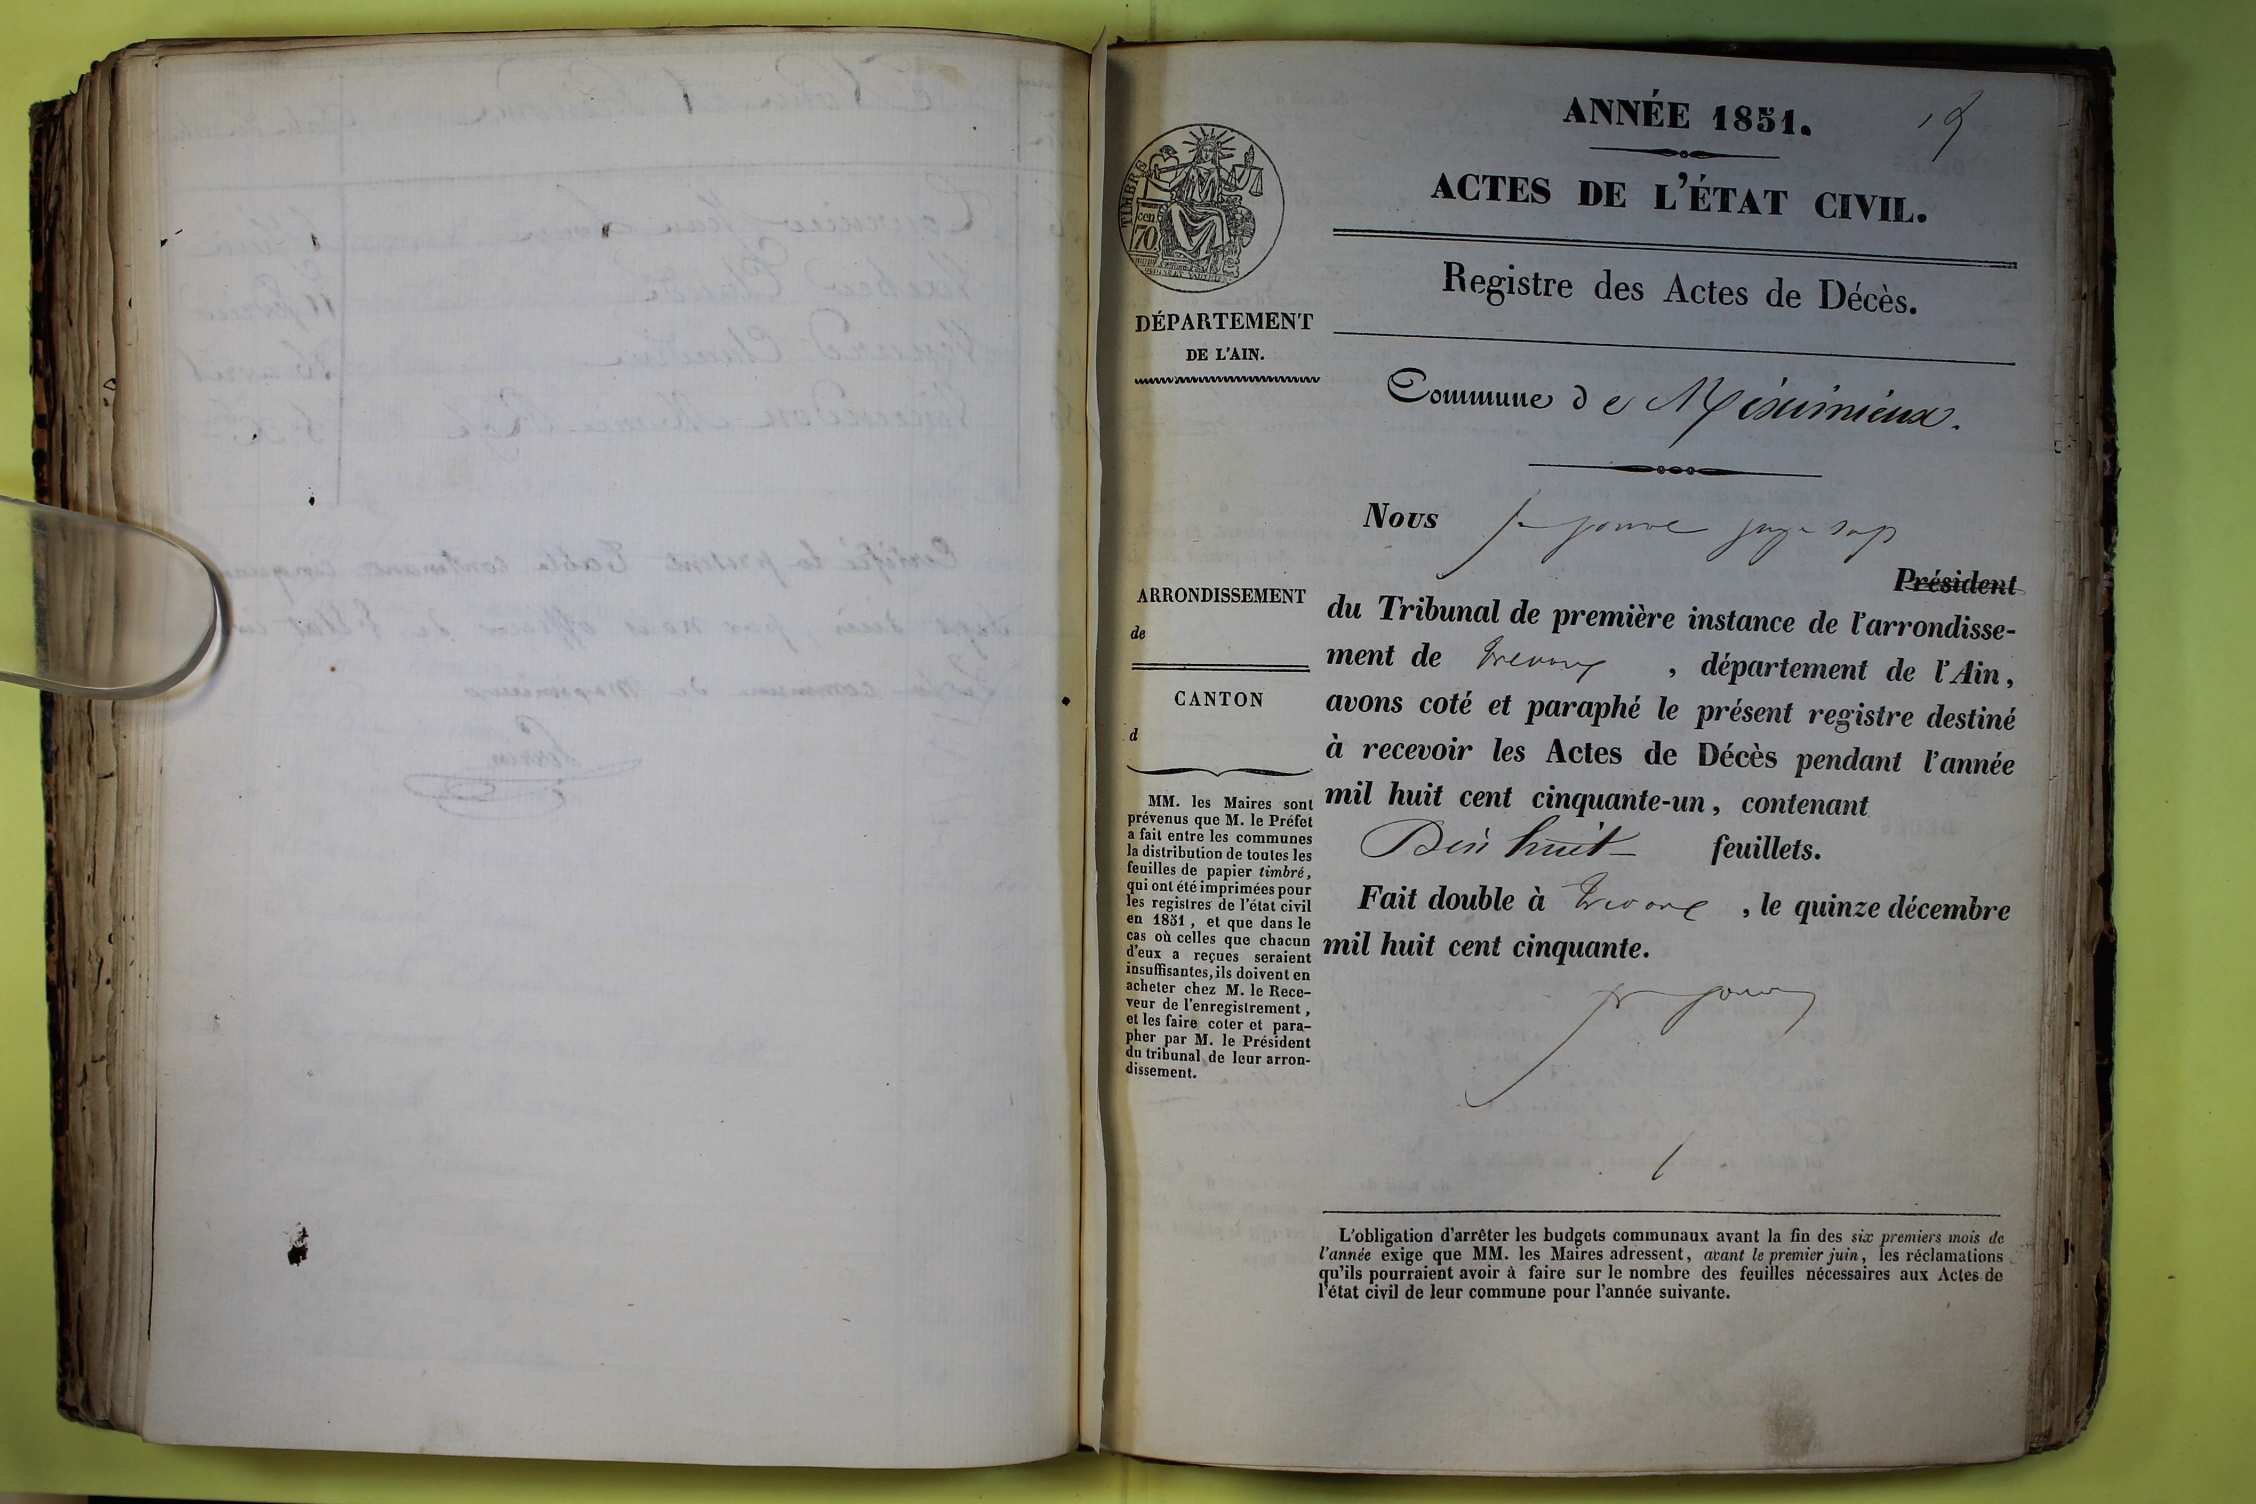 ANNÉE 1851.
ACTES DE L'ÉTAT CIVIL.
Registre des Actes de Décès.
TIMBRE
cen
70
DÉPARTEMENT
DE L'AIN.
Commune de Méximieux.
Nous
Président
ARRONDISSEMENT
de
CANTON
d
MM. les Maires sont
prévenus que M. le Préfet
a fait entre les communes
la distribution de toutes les
feuilles de papier timbré,
qui ont été imprimées pour
les registres de l'état civil
en 1851, et que dans le
cas où celles que chacun
d'eux a reçues seraient
insuffisantes, ils doivent en
acheter chez M. le Rece-
veur de l'enregistrement,
et les faire coter et para-
pher par M. le Président
du tribunal de leur arron-
dissement.
du Tribunal de première instance de l'arrondisse-
ment de Trevoux, département de l'Ain,
avons coté et paraphé le présent registre destiné
à recevoir les Actes de Décès pendant l'année
mil huit cent cinquante-un, contenant
Dix huit feuillets.
Fait double à Trevoux, le quinze décembre
mil huit cent cinquante.
L'obligation d'arrêter les budgets communaux avant la fin des six premiers mois de
l'année exige que MM. les Maires adressent, avant le premier juin, les réclamations
qu'ils pourraient avoir à faire sur le nombre des feuilles nécessaires aux Actes de
l'état civil de leur commune pour l'année suivante.